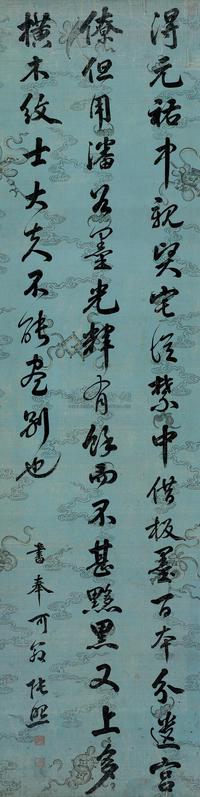 得元祐中親賢宅從禁中借板墨百本分遺宮
僚但用潘谷墨光輝有餘而不甚黟黑又上多
橫木紋士大夫不能盡別也
書奉可翁 張照